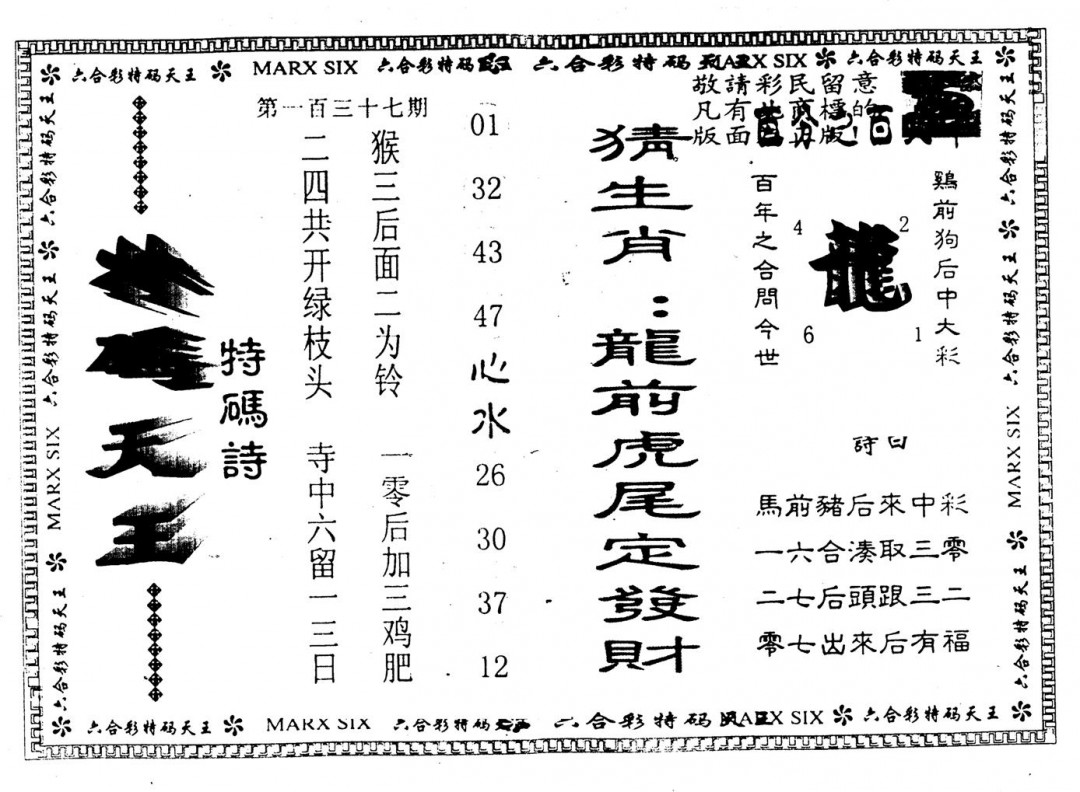 六合彩特码天王 MARX SIX 六合彩特码 六合彩特码 MARX SIX 六合彩特码天王
敬請彩民留意
凡有此商標的
版面
第一百三十七期
特码天王
特碼詩
二四共开绿枝头 寺中六留一三日
猴三后面二为铃 一零后加三鸡肥
01
32
43
47
心水
26
30
37
12
猜生肖：龍前虎尾定發財
百年之合問今世
4
2
龍
6
1
鷄前狗后中大彩
詩曰
馬前豬后來中彩
一六合湊取三零
二七后頭跟三二
零七出來后有福
六合彩特码天王 MARX SIX 六合彩特码天王
六合彩特码天王 MARX SIX 六合彩特码天王
六合彩特码天王 MARX SIX 六合彩特码 六合彩特码 MARX SIX 六合彩特码天王